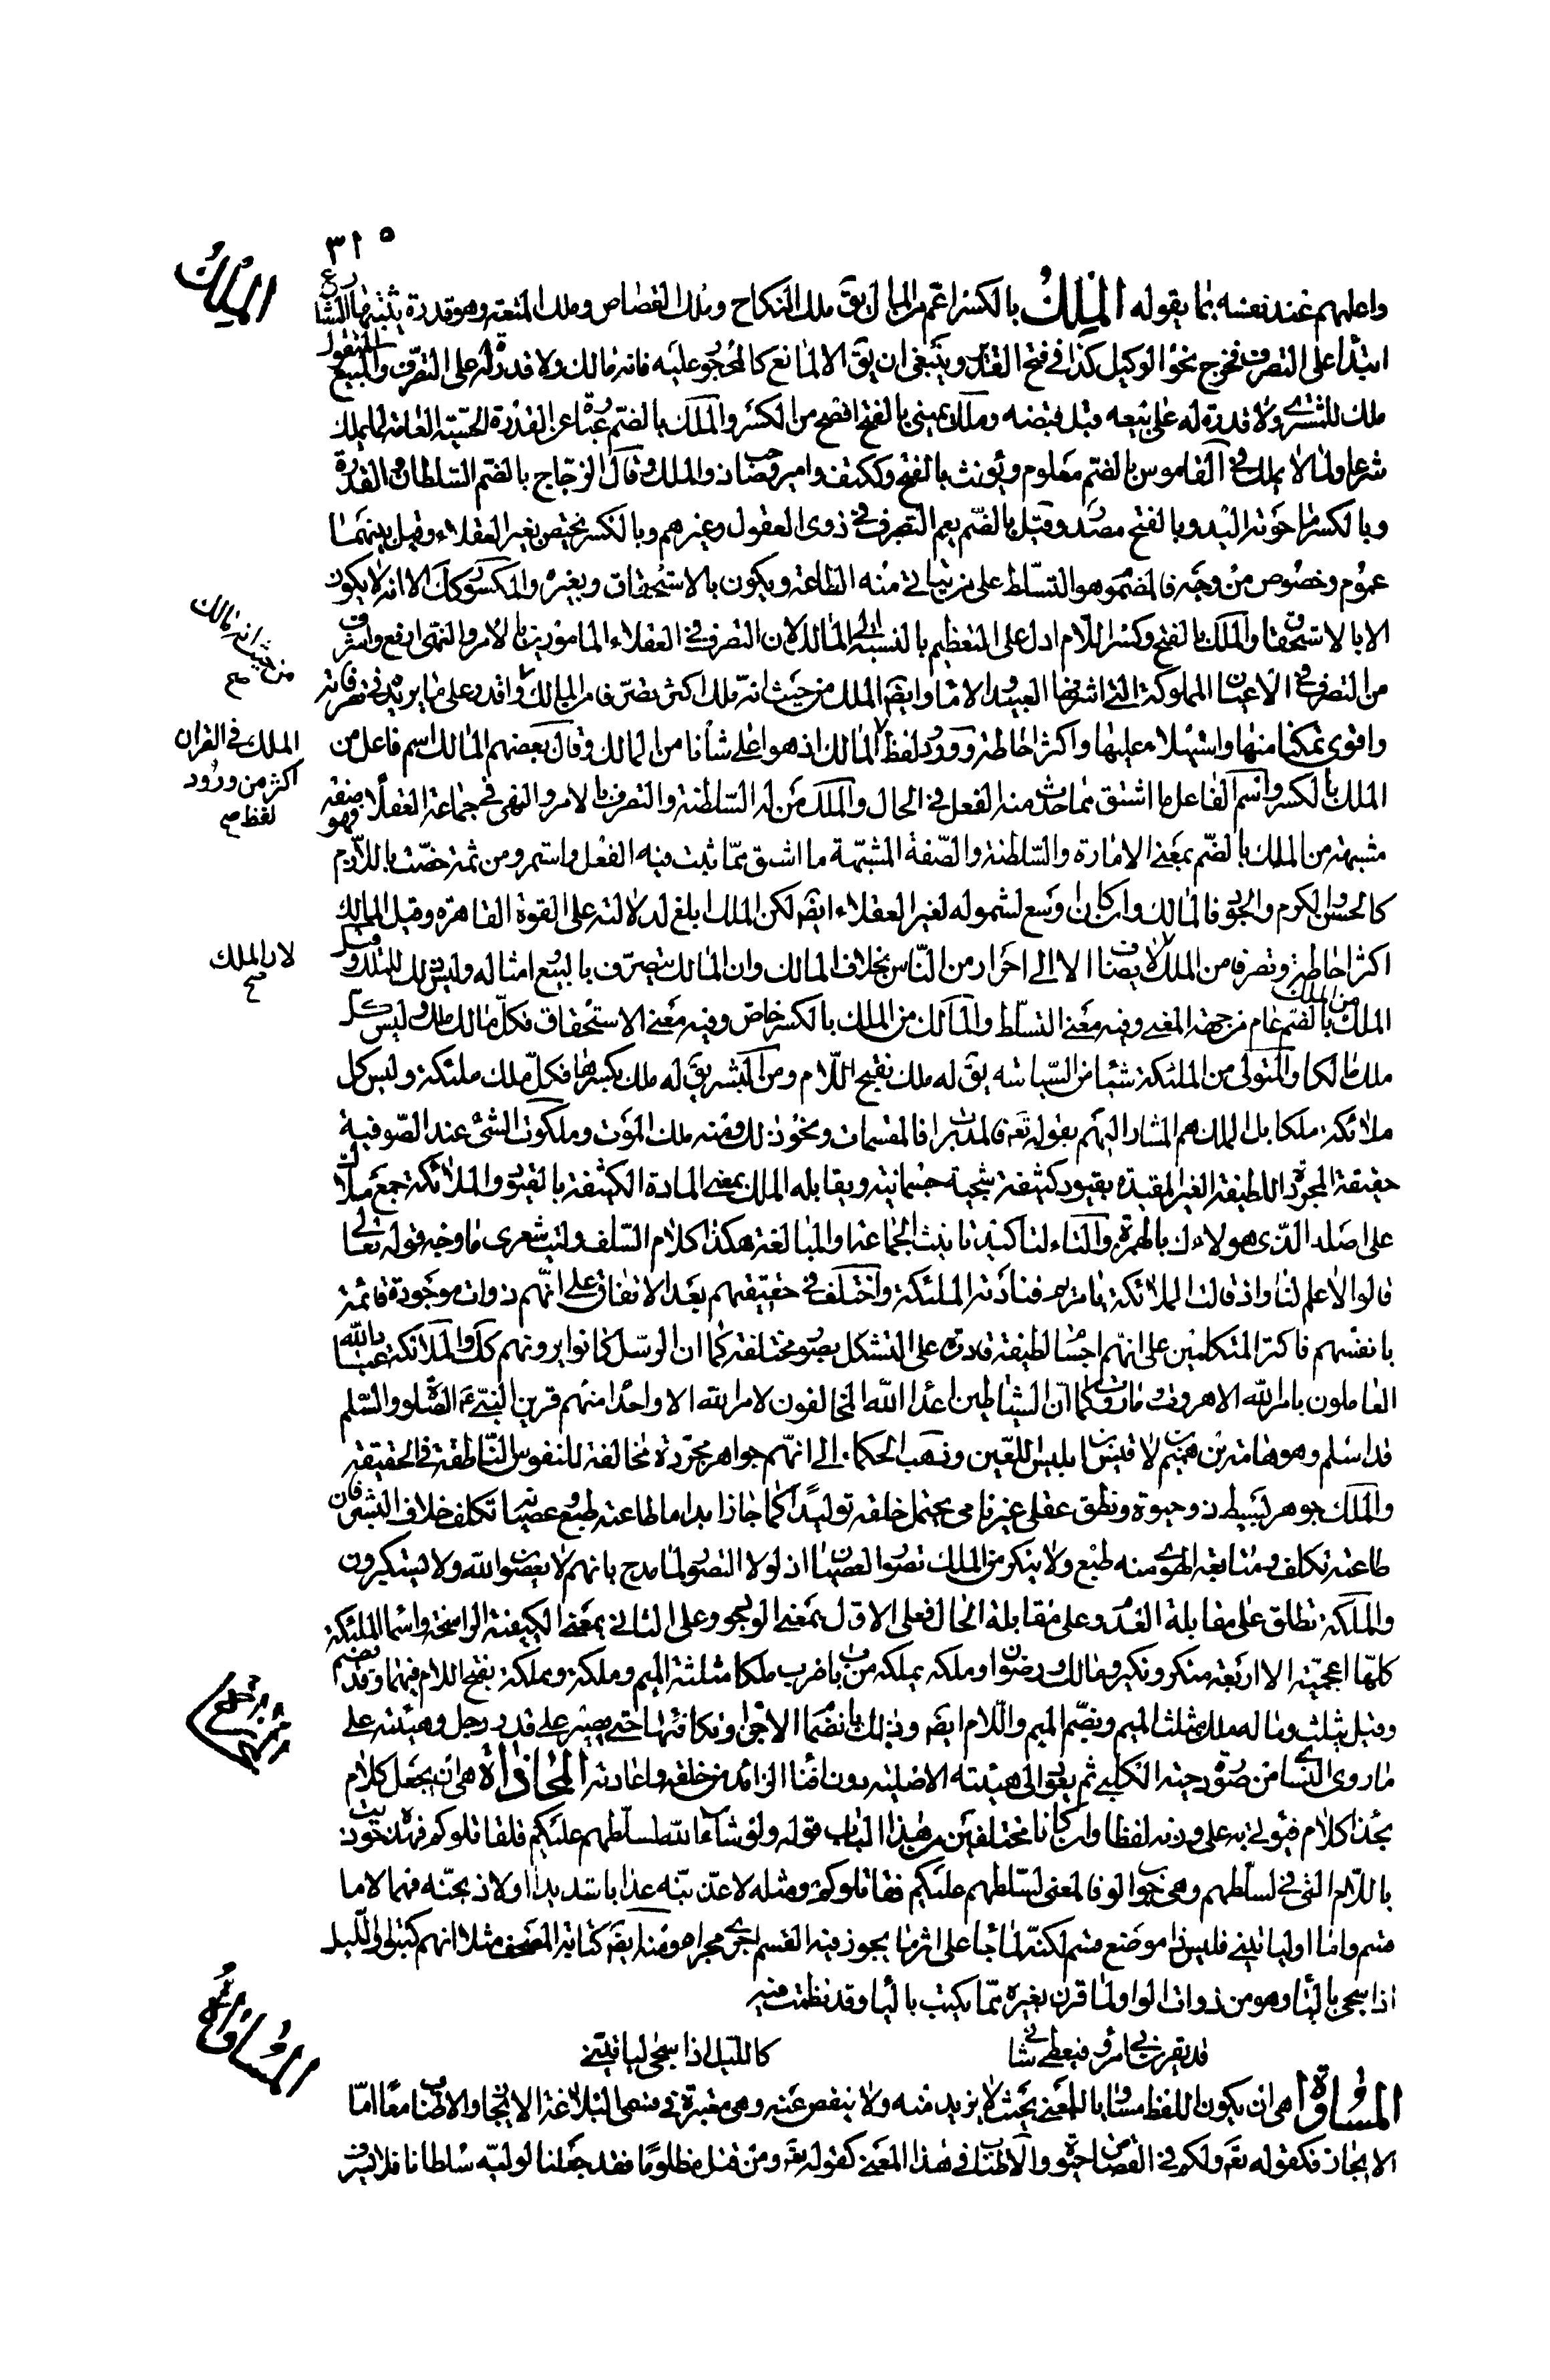 ٣١٥
الملك
واعلمهم عند نفسه بما يقوله الملك بالكسر اعم من المال يق ملك النكاح وملك القصاص وملك المتعة وهو قدرة يثبتها الشارع
ابتداء على التصرف فخرج نحو الوكيل كذا في فتح القدير وينبغي ان يق الا لمانع كالمحجور عليه فانه مالك ولا قدرة له على التصرف والمبيع المنقول
ملك للمشتري ولا قدرة له على بيعه قبل قبضه وملك يميني بالفتح افصح من الكسر والملك بالضم عبارة عن القدرة الحسية العامة لما يملك
شرعا ولما لا يملك في القاموس بالضم معلوم ويونث بالفتح وككتف وامير وصاحب ذو الملك وقال الزجاج بالضم السلطان والقدرة
وبالكسر ما حوته اليد وبالفتح مصدر وقيل بالضم يعم التصرف في ذوى العقول وغيرهم وبالكسر يختص بغير العقلاء وقيل بينهما
عموم وخصوص من وجه فالمضموم هو التسلط على من يتاتى منه الطاعة ويكون بالاستحقاق وبغيره والمكسور كك الا انه لا يكون
الا بالاستحقاق والملك بالفتح وكسر اللام ادل على التعظيم بالنسبة الى المالك لان التصرف في العقلاء المامورين بالامر والنهي ارفع واشرف
من التصرف في الاعيان المملوكة التي اشرفها العبيد والاماء وايضا الملك من حيث انه ملك اكثر تصرفا من المالك واقدر على ما يريد في تصرفاته
من حيث انه مالك صح
واقوى تمكنا منها واستيلاء عليها واكثر احاطة وورود لفظ المالك اذ هو اعلى شأنا من المالك وقال بعضهم المالك اسم فاعل من
الملك في القران
اكثر من ورود
لفظ صح
الملك بالكسر واسم الفاعل ما اشتق مما حدث منه الفعل في الحال والملك من له السلطنة والتصرف بالامر والنهي في جماعة العقلاء فهو صفة
مشبهة من الملك بالضم بمعنى الامارة والسلطنة والصفة المشبهة ما اشتق مما ثبت فيه الفعل واستمر ومن ثمة خصت باللازم
كالحسن والكرم والجود فالمالك وان كان اوسع لشموله لغير العقلاء ايضا لكن الملك ابلغ لدلالته على القوة القاهرة وقيل المالك
اكثر احاطة وتصرفا من الملك لا يضاف الا الى احرار من الناس بخلاف المالك وان المالك يتصرف بالبيع وامثاله وليس ذلك للملك وقيل
لان الملك
صح
الملك من الملك بالضم عام من جهة المعنى وفيه معنى التسلط والمالك من الملك بالكسر خاص وفيه معنى الاستحقاق فكل مالك ملك وليس كل
ملك مالكا والمتولى من الملئكة شيئا من السياسة يق له ملك بفتح اللام ومن البشر يق له ملك بكسرها فكل ملك ملئكة وليس كل
ملائكة ملكا بل الملك هم المشار اليهم بقوله تع فالمدبرات فالمقسمات ونحو ذلك ومنه ملك الموت وملكوت الشئ عند الصوفية
حقيقة المجردة اللطيفة الغير المقيدة بقيود كثيفة شجية جسمانية ويقابله الملك بمعنى المادة الكثيفة بالقيود والملائكة جمع ملأك
على اصله الذي هو لاءك بالهمزة والتاء لتاكيد تانيث الجماعة او المبالغة هكذا كلام السلف وليت شعرى ما وجه قوله تعالى
قالوا لا علم لنا واذ قالت الملائكة يا مريم فنادته الملئكة واختلف في حقيقتهم بعد الاتفاق على انهم ذوات موجودة قائمة
بانفسهم فاكثر المتكلمين على انهم اجسام لطيفة قادرة على التشكل بصور مختلفة كما ان الرسل كانوا يرونهم كك والملائكة عباد الله
العاملون بامر الله الا هاروت وماروت كما ان الشياطين اعداء الله المخالفون لامر الله الا واحدا منهم قرين النبي عم الصلوة والسلم
قد اسلم وهو هامة بن هيم بن لاقيس بن ابليس اللعين وذهب الحكماء الى انهم جواهر مجردة مخالفة للنفوس الناطقة في الحقيقة
والملك جوهر بسيط ذو حيوة ونطق عقلى غير نامى يحتمل خلقه توليدا كما جاز ابداعا طاعته طبع وعصيانه تكلف خلاف البشر فان
طاعته تكلف ومتابعة الهوى منه طبع ولا ينكر من الملك تصور العصيان اذ لولا التصور لما مدح بانهم لا يعصون الله ولا يستكبرون
والملكة تطلق على مقابلة العدم وعلى مقابلة الحال فعلى الاول بمعنى الوجود وعلى الثاني بمعنى الكيفية الراسخة واسماء الملئكة
كلها اعجمية الا اربعة منكر ونكير ومالك ورضوان وملكه يملكه من باب ضرب ملكا مثلثة الميم وملكة ومملكة بفتح اللام فيهما وقد تضم
وقيل يثلث وماله ملك مثلث الميم وبضم الميم واللام ايضا وذلك بانضمام الاجزاء وتكاثفها حتى يصير على قدر رجل وهيئته على
ما روى النسائي من صورة دحية الكلبي ثم يعود الى هيئته الاصلية دون افناء الزائد من خلقه واعادته المحاذاة هي ان يجعل كلام
بحذاء كلام فيؤتى به على وزنه لفظا وان كانا مختلفين من هذا الباب قوله ولو شاء الله لسلطهم عليكم فلقاتلوكم فهذه حوذيت
باللام التي في لسلطهم وهي جواب لو فالمعنى لسلطهم عليكم فقاتلوكم ومثله لاعذبنه عذابا شديدا او لاذبحنه فهما لاما
قسم واما او ليأتيني فليس ذا موضع قسم لكنه لما جاء على اثر ما يجوز فيه القسم اجرى مجراه ومنه ايضا كتابة المصحف مثلا انهم كتبوا والليل
اذا سجى بالياء وهو من ذوات الواو لما قرن بغيره مما يكتب بالياء وقد نظمت فيه
قد يقرن بي امرؤ فيعطى شاني
كالليل اذا سجى ليأتيني
المساواة
المساواة هي ان يكون اللفظ مساويا للمعنى بحيث لا يزيد منه ولا ينقص عنه وهي معتبرة في قسمى البلاغة الايجاز والاطناب معا اما
الايجاز فكقوله تع ولكم في القصاص حيوة والاطناب في هذا المعنى كقوله تع ومن قتل مظلوما فقد جعلنا لوليه سلطانا فلا يسرف